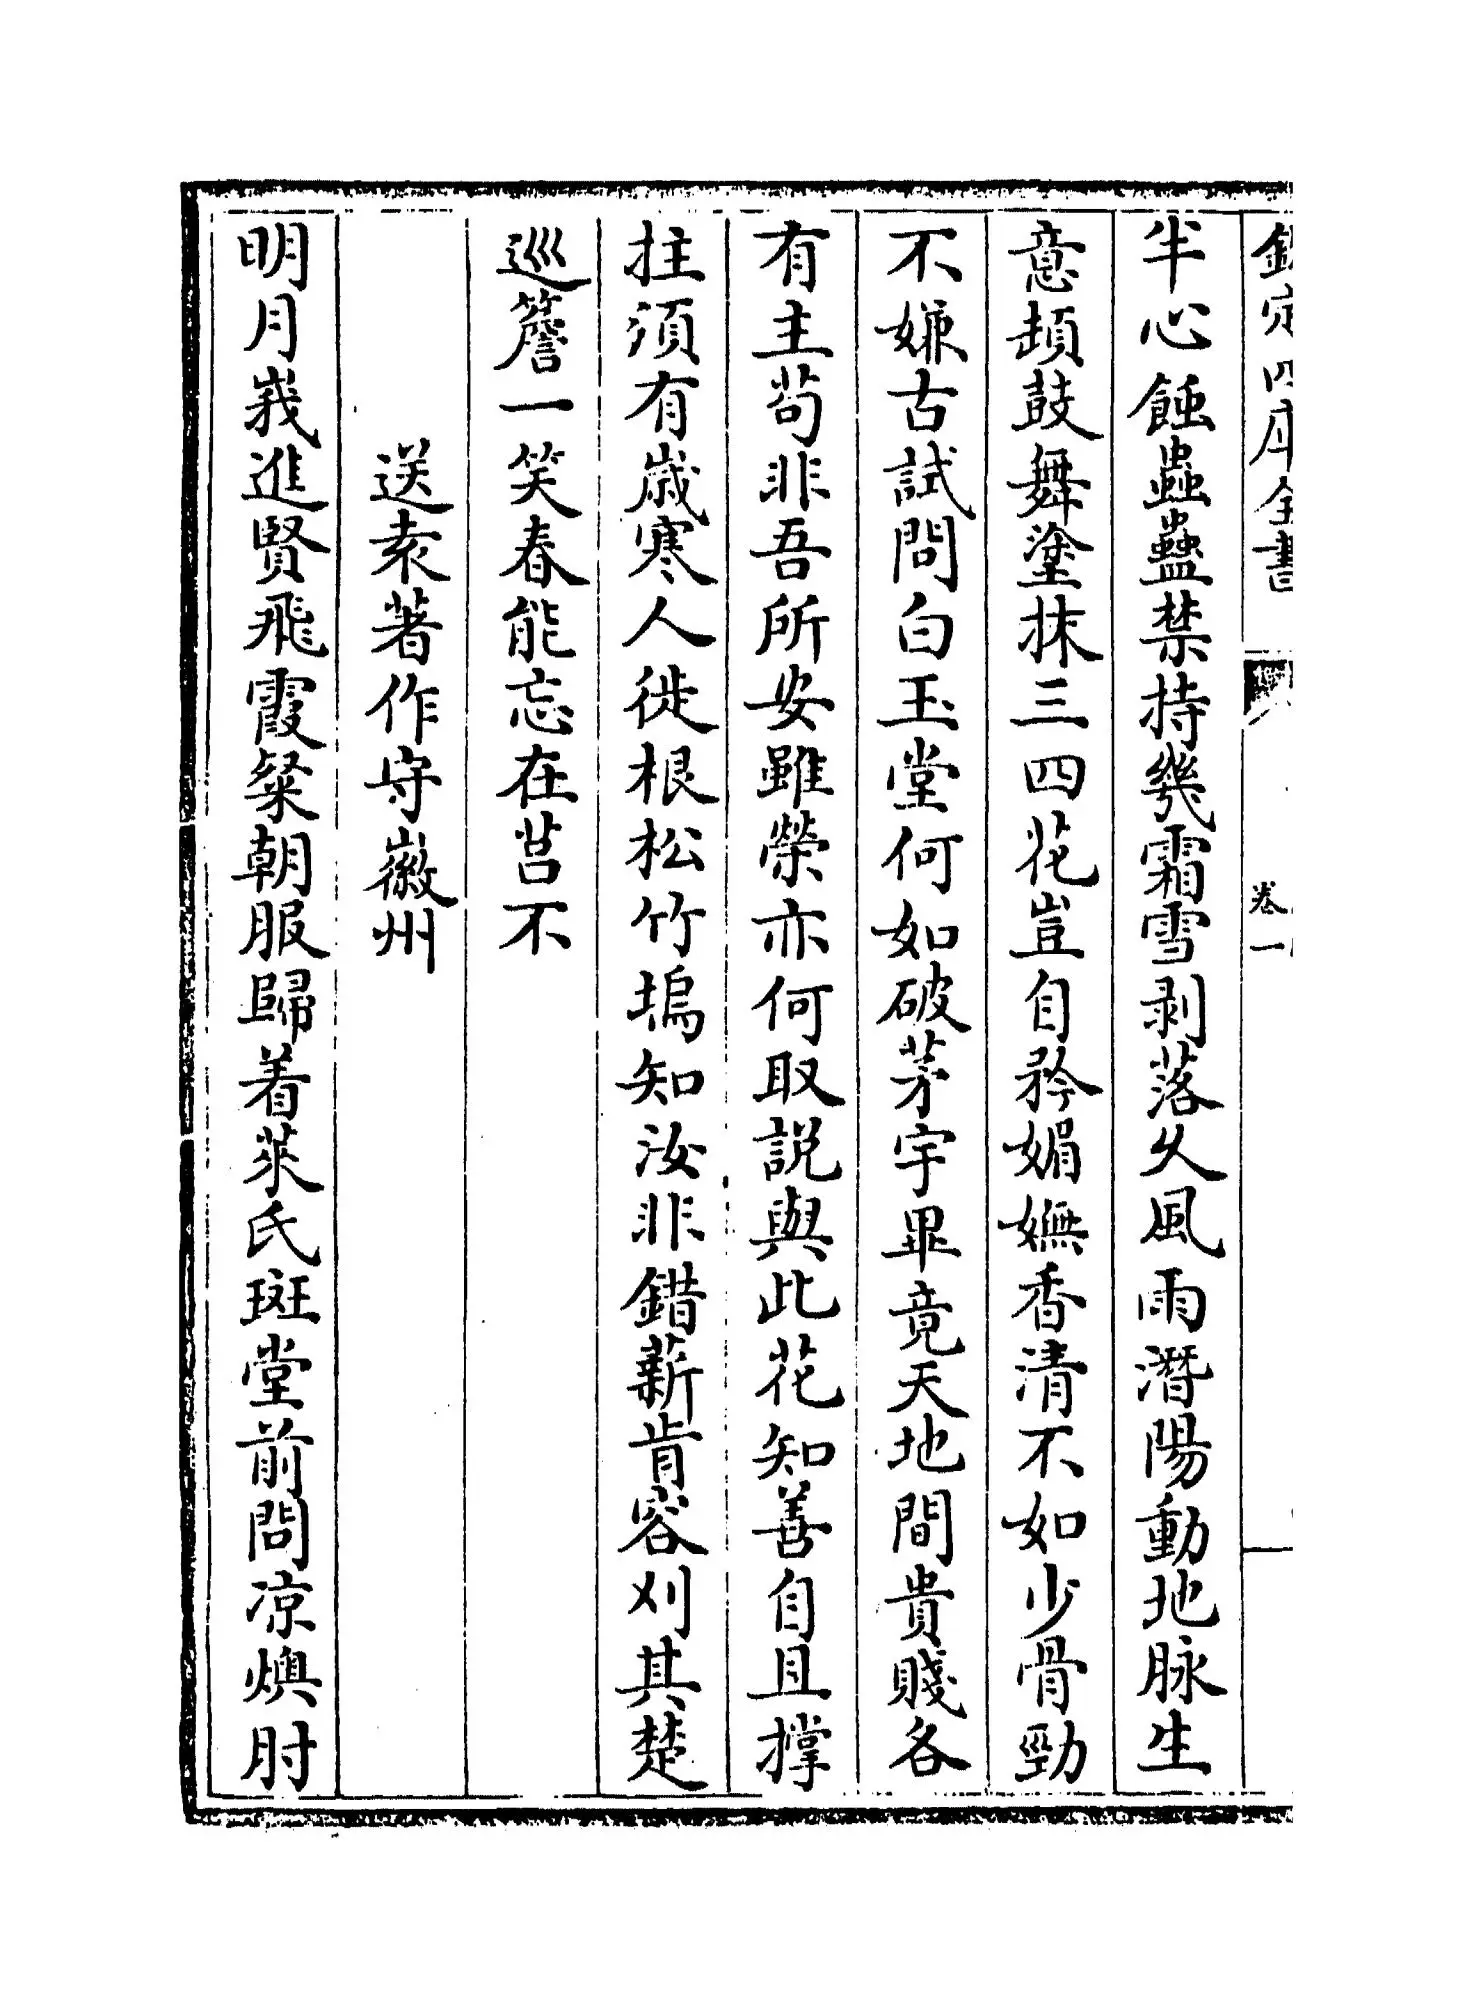 欽定四庫全書
卷一
半心蝕蟲蠱禁持幾霜雪剥落久風雨潛陽動地脉生
意頻鼓舞塗抹三四花豈自矜媚嫵香清不如少骨勁
不嫌古試問白玉堂何如破茅宇畢竟天地間貴賤各
有主茍非吾所安雖榮亦何取説與此花知善自且撐
拄須有歲寒人徙根松竹塢知汝非錯薪肯容刈其楚
巡簷一笑春能忘在莒不
送袁著作守徽州
明月峩進賢飛霞粲朝服歸着萊氏斑堂前問凉燠肘